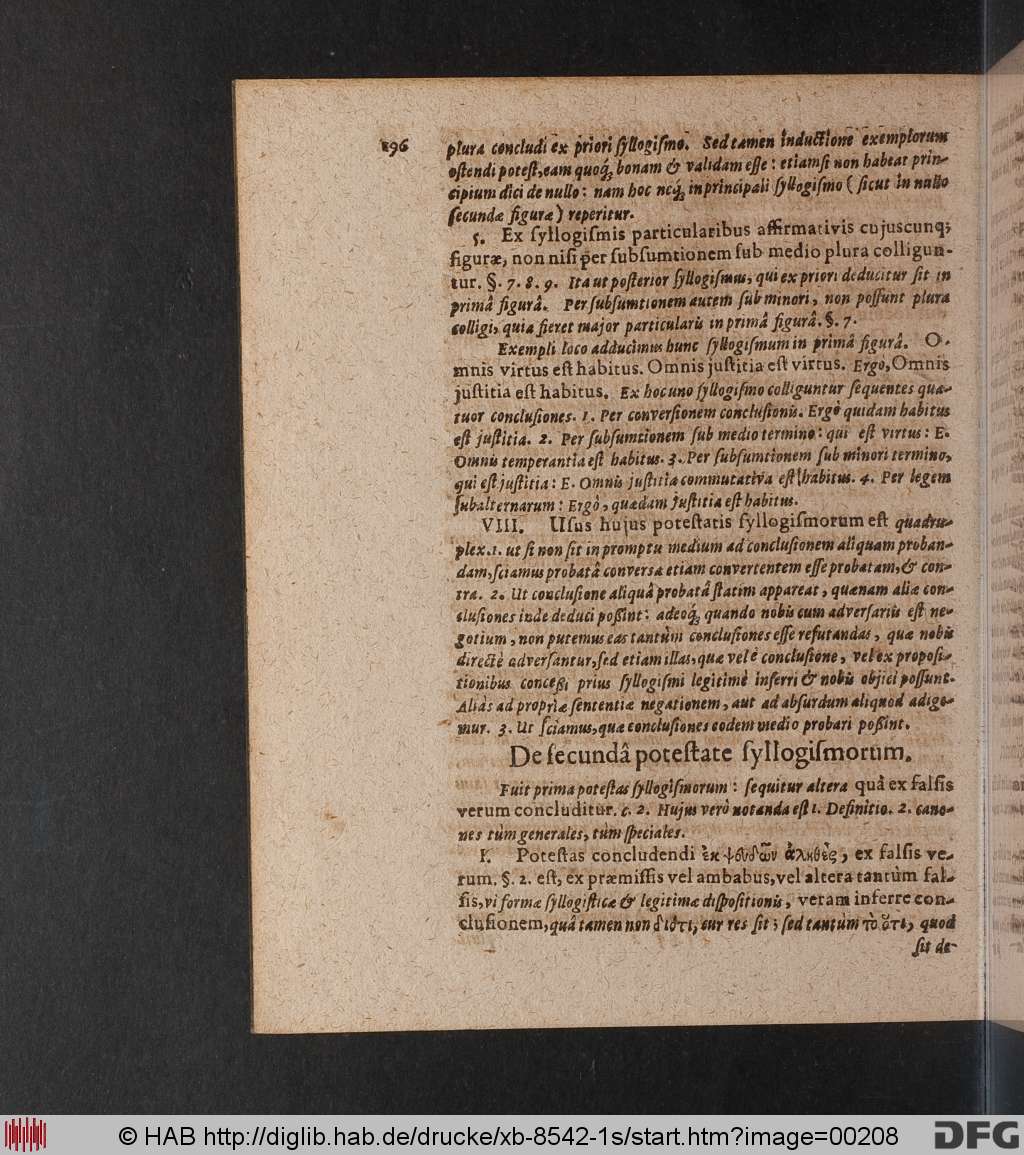 196
plura concludi ex priori ſyllogiſmo. Sed tamen inductione exemplorum
oſtendi poteſt, eam quoq́; bonam & validam eſſe: etiamſi non habeat prin-
cipium dici de nullo: nam hoc neq́; in principali ſyllogiſmo (ſicut in nullo
ſecundæ figuræ) reperitur.
5. Ex ſyllogiſmis particularibus affirmativis cujuscunq;
figuræ, non niſi per ſubſumtionem ſub medio plura colligun-
tur. §. 7. 8. 9. Ita ut poſterior ſyllogiſmus, qui ex priori deducitur ſit in
primâ figurâ. Per ſubſumtionem autem ſub minori, non poſſunt plura
colligi, quia fieret major particularis in primâ figurâ. §. 7.
Exempli loco adducimus hunc ſyllogiſmum in primâ figurâ. O-
mnis virtus eſt habitus. Omnis juſtitia eſt virtus. Ergo, Omnis
juſtitia eſt habitus. Ex hoc uno ſyllogiſmo colliguntur ſequentes qua-
tuor concluſiones. 1. Per converſionem concluſionis. Ergò quidam habitus
eſt juſtitia. 2. Per ſubſumtionem ſub medio termino: qui eſt virtus: E.
Omnis temperantia eſt habitus. 3. Per ſubſumtionem ſub minori termino,
qui eſt juſtitia: E. Omnis juſtitia commutativa eſt habitus. 4. Per legem
ſubalternarum: Ergò, quædam juſtitia eſt habitus.
VIII. Uſus hujus poteſtatis ſyllogiſmorum eſt quadru-
plex. 1. ut ſi non ſit in promptu medium ad concluſionem aliquam proban-
dam, ſciamus probatâ converſa etiam convertentem eſſe probatam, & con-
tra. 2. Ut concluſione aliquâ probatâ ſtatim appareat, quænam aliæ con-
cluſiones inde deduci poßint: adeoq́; quando nobis cum adverſariis eſt ne-
gotium, non putemus eas tantùm concluſiones eſſe refutandas, quæ nobis
directè adverſantur, ſed etiam illas, quæ vel è concluſione, vel ex propoſi-
tionibus conceßi prius ſyllogiſmi legitimè inferri & nobis objici poſſunt.
Aliàs ad propriæ ſententiæ negationem, aut ad abſurdum aliquod adige-
mur. 3. Ut ſciamus, quæ concluſiones eodem medio probari poßint.
De ſecundâ poteſtate ſyllogiſmorum.
Fuit prima poteſtas ſyllogiſmorum: ſequitur altera quâ ex falſis
verum concluditur. c. 2. Hujus verò notanda eſt 1. Definitio. 2. cano-
nes tùm generales, tùm ſpeciales.
I. Poteſtas concludendi ἐκ ψευδῶν ἀληθὲς, ex falſis ve-
rum. §. 2. eſt, ex præmiſſis vel ambabus, vel altera tantùm fal-
ſis, vi formæ ſyllogiſticæ & legitimæ diſpoſitionis, veram inferre con-
cluſionem, quâ tamen non διότι, cur res ſit; ſed tantùm τὸ ὅτι, quod
ſit de-
© HAB http://diglib.hab.de/drucke/xb-8542-1s/start.htm?image=00208
DFG